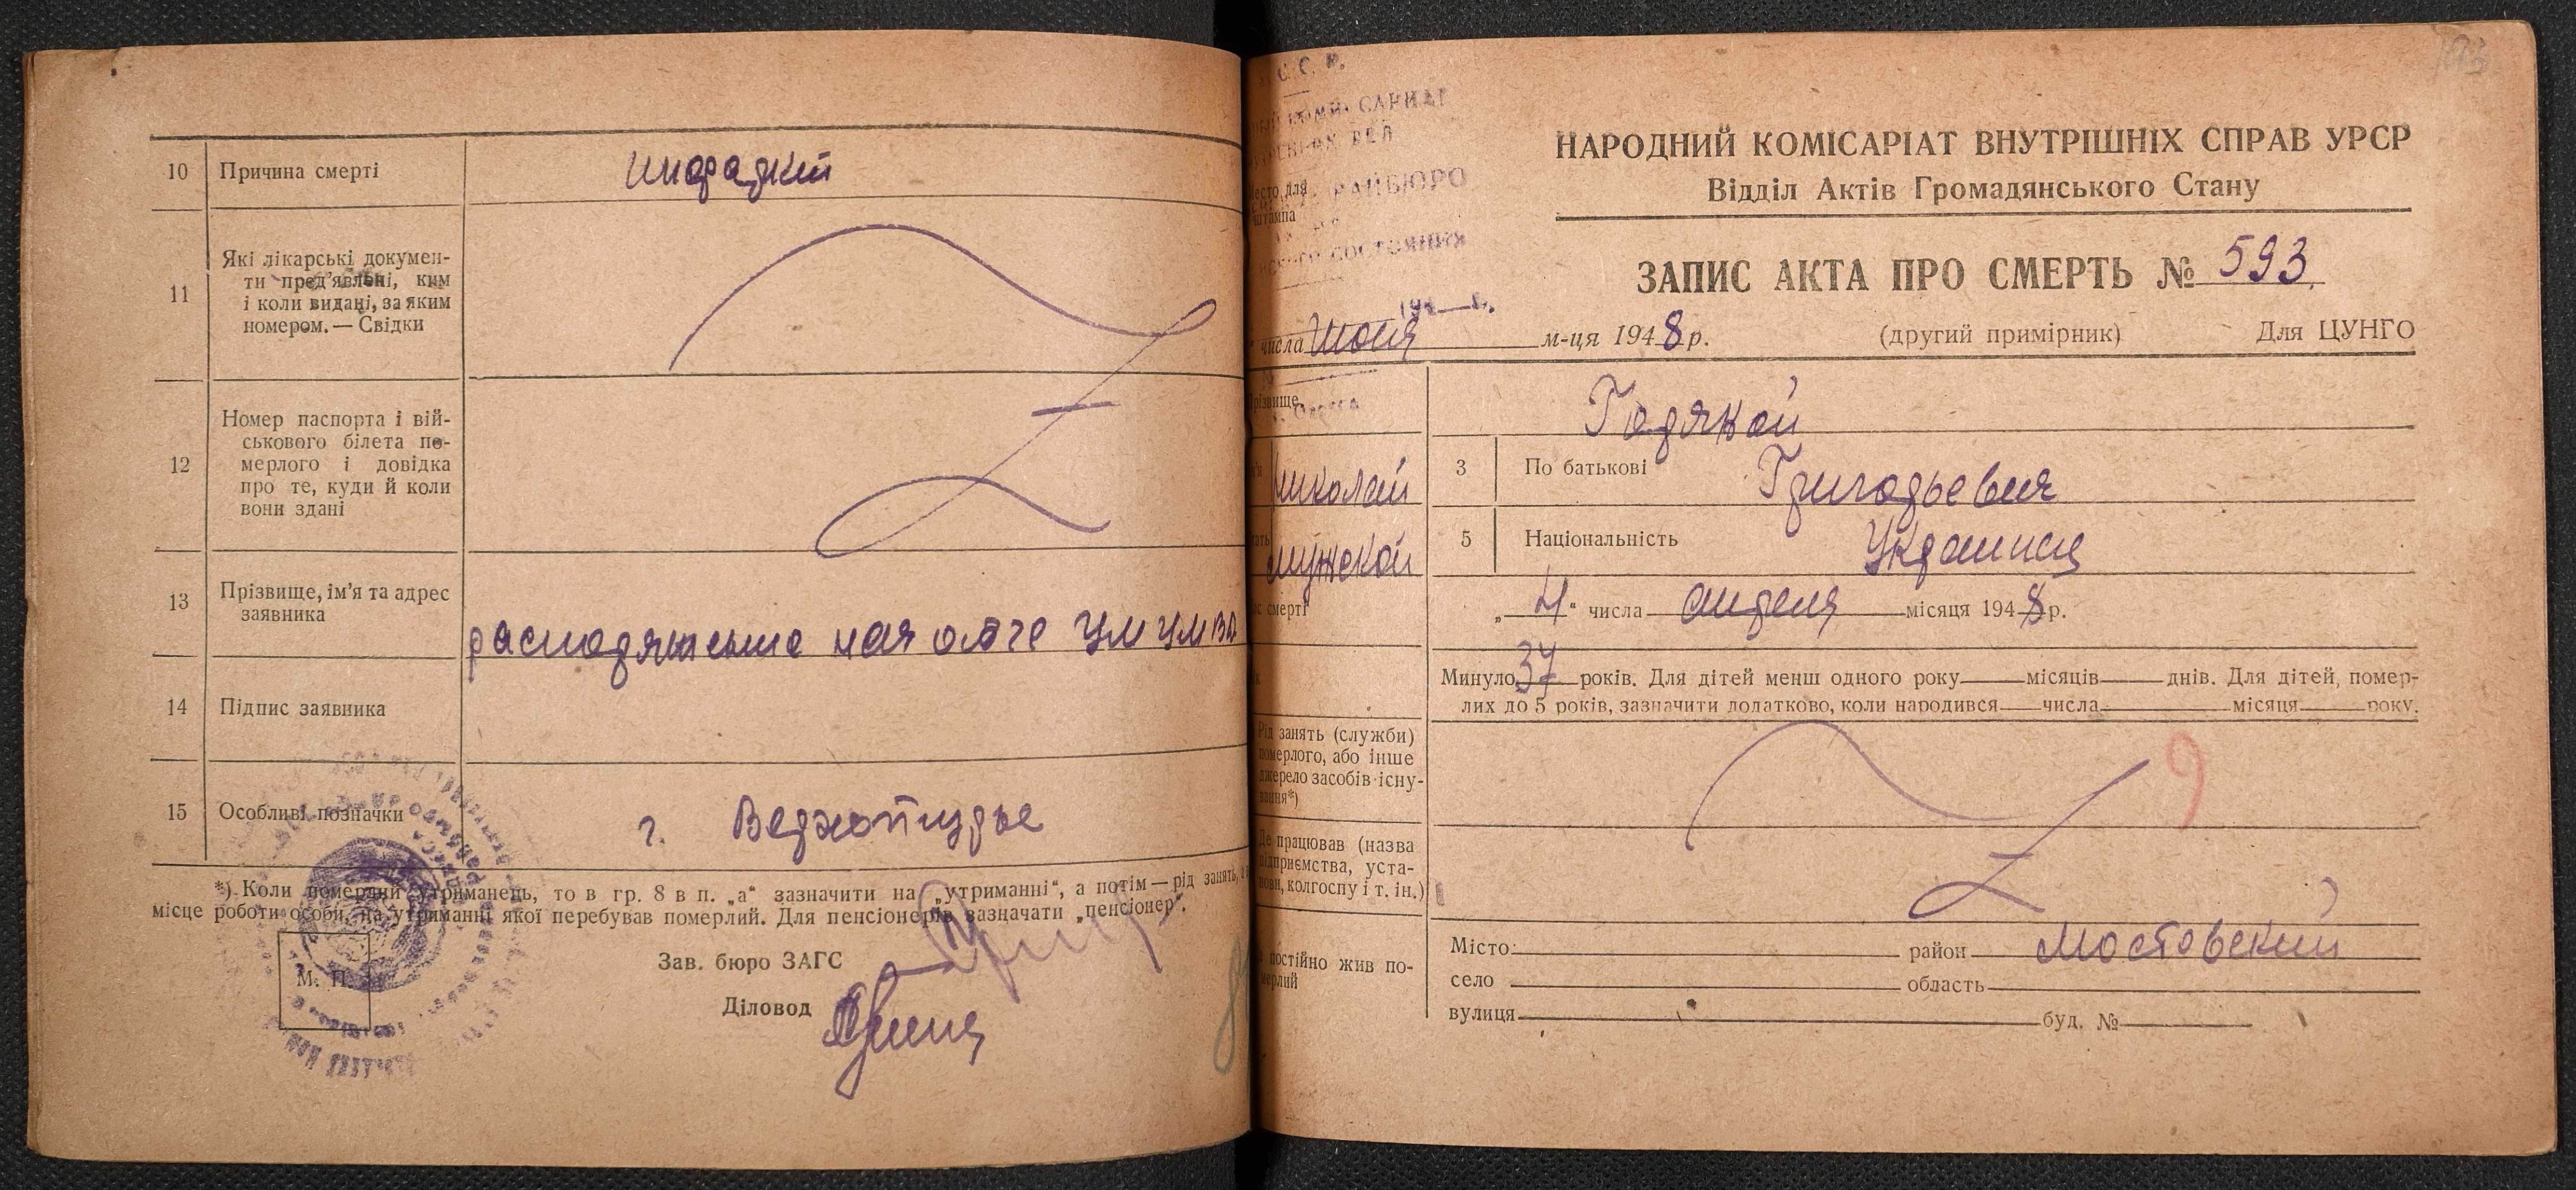 10 Причина смерти инфаркт
11 Які лікарські докумен-
ти пред’явлені, ким
і коли видані, за яким
номером. — Свідки
12 Номер паспорта і вій-
ськового білета по-
мерлого і довідка
про те, куди й коли
вони здані
13 Прізвище, ім’я та адрес
заявника
14 Підпис заявника
15 Особливі позначки г.
*) Коли померлий утриманець, то в гр. 8 в п. „а“ зазначити на „утриманні“, а потім — рід занять,
місце роботи особи, на утриманні якої перебував померлий. Для пенсіонерів зазначати „пенсіонер“.
Зав. бюро ЗАГС
Діловод
М. П.
РАЙБЮРО
СОСТОЯНИЯ
194__г.
НАРОДНИЙ КОМІСАРІАТ ВНУТРІШНІХ СПРАВ УРСР
Відділ Актів Громадянського Стану
ЗАПИС АКТА ПРО СМЕРТЬ № 593.
числа Июня м-ця 1948 р. (другий примірник) Для ЦУНГО
Николай 3 По батькові Григорьевич
мужской 5 Національність Украинец
смерті „4“ числа апреля місяця 1948 р.
Минуло 37 років. Для дітей менш одного року місяців днів. Для дітей, помер-
лих до 5 років, зазначити додатково, коли народився числа місяця року.
Рід занять (служби)
померлого, або інше
джерело засобів існу-
вання*)
9
Де працював (назва
підприємства, уста-
нови, колгоспу і т. ін.)
постійно жив по-
мерлий
Місто: район Мостовский
село область
вулиця буд. №